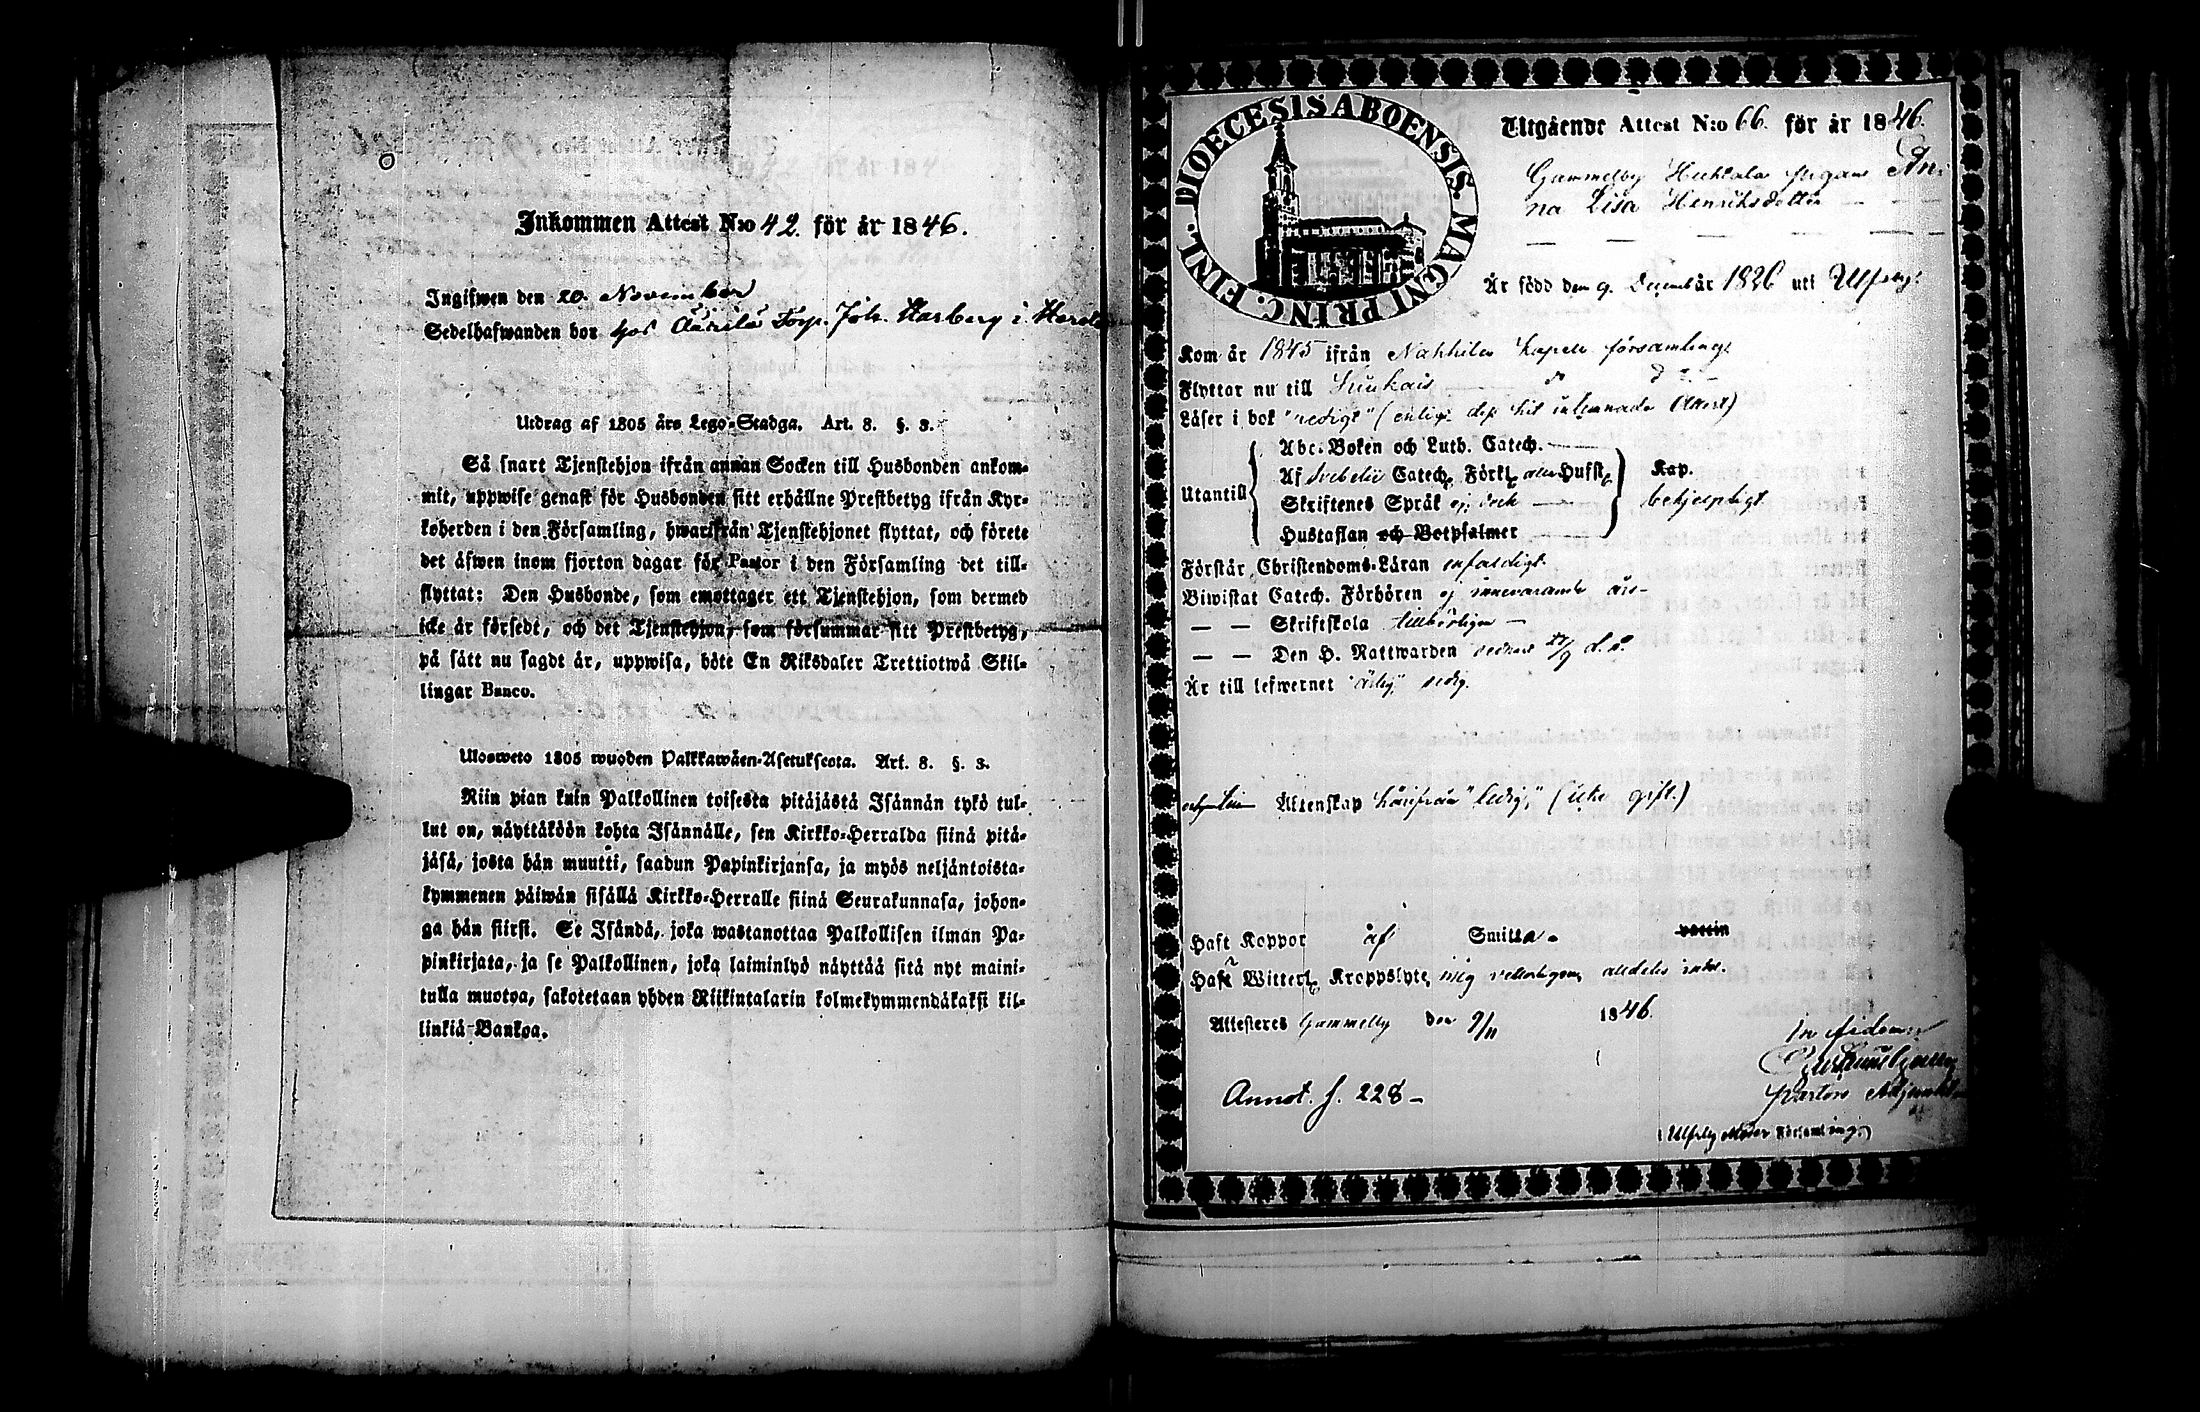 Inkommen Attest N:o 42. för år 1846.
Ingifwen den 20. November
Sedelhafwanden bor hos Torp. Joh. Harberg i
Utdrag af 1805 års Lego-Stadga. Art. 8. §. 3.
Så snart Tjenstehjon ifrån annan Socken till Husbonden ankom-
mit, uppwise genast för Husbonden sitt erhållne Prestbetyg ifrån Kyr-
koherden i den Församling, hwarifrån Tjenstehjonet flyttat, och förete
det äfwen inom fjorton dagar för Pastor i den Församling det till-
flyttat: Den Husbonde, som emottager ett Tjenstehjon, som dermed
icke är försedt, och det Tjenstehjon, som försummar sitt Prestbetyg,
på sätt nu sagdt är, uppwisa, böte En Riksdaler Trettiotwå Skil-
lingar Banco.
Ulosweto 1805 wuoden Palkkawäen-Asetuksesta. Art. 8. §. 3.
Niin pian kuin Palkollinen toisesta pitäjästä Isännän tykö tul-
lut on, näyttäköön kohta Isännälle, sen Kirkko-Herralda siinä pitä-
jäsä, josta hän muutti, saadun Papinkirjansa, ja myös neljäntoista-
kymmenen päiwän sisällä Kirkko-Herralle siinä Seurakunnasa, johon-
ga hän siirsi. Se Isändä, joka wastanottaa Palkollisen ilman Pa-
pinkirjata, ja se Palkollinen, joka laiminlyö näyttää sitä nyt maini-
tulla muotoa, sakotetaan yhden Riikintalarin kolmekymmendäkaksi kil-
linkiä Bankoa.
DIOECESIS ABOENSIS. MAGNI PRINC. FINL.
Utgående Attest N:o 66. för år 1846.
Gammelby Huhtala pigan An-
na Lisa Henriksdotter
Är född den 9. December 1826 uti Ulfsby
Kom år 1845 ifrån Nakkila Kapells församling
Flyttar nu till Kiukais do do
Läser i bok "redigt" (enligt dess hit inlemnade Attest)
Utantill
Abc-Boken och Luth. Catech.
Af Svebelii Catech. Förkl. eller Hufst.
Skriftenes Språk ej dock
Hustaflan och Botpsalmer
Kap.
behjelpligt
Förstår Christendoms-Läran enfaldigt
Biwistat Catech. Förhören ej innevarande års
— — Skriftskola tillbörligen
— — Den H. Nattwarden d. å.
Är till lefwernet "ärlig" sedig.
Äktenskap härifrån "ledig," (icke gift.)
Haft Koppor af Smitta. vaccin
Haft Witterl. Kroppslyte mig vetterligen, alldeles intet.
Attesteres Gammelby den 9/11 1846.
In fidem
Pastors Adjunkt
Annot. f. 228
(Ulfsby Moder Församling.)